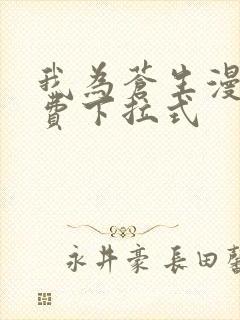 我為蒼生漫
費下拉式
永井豪 長田馨